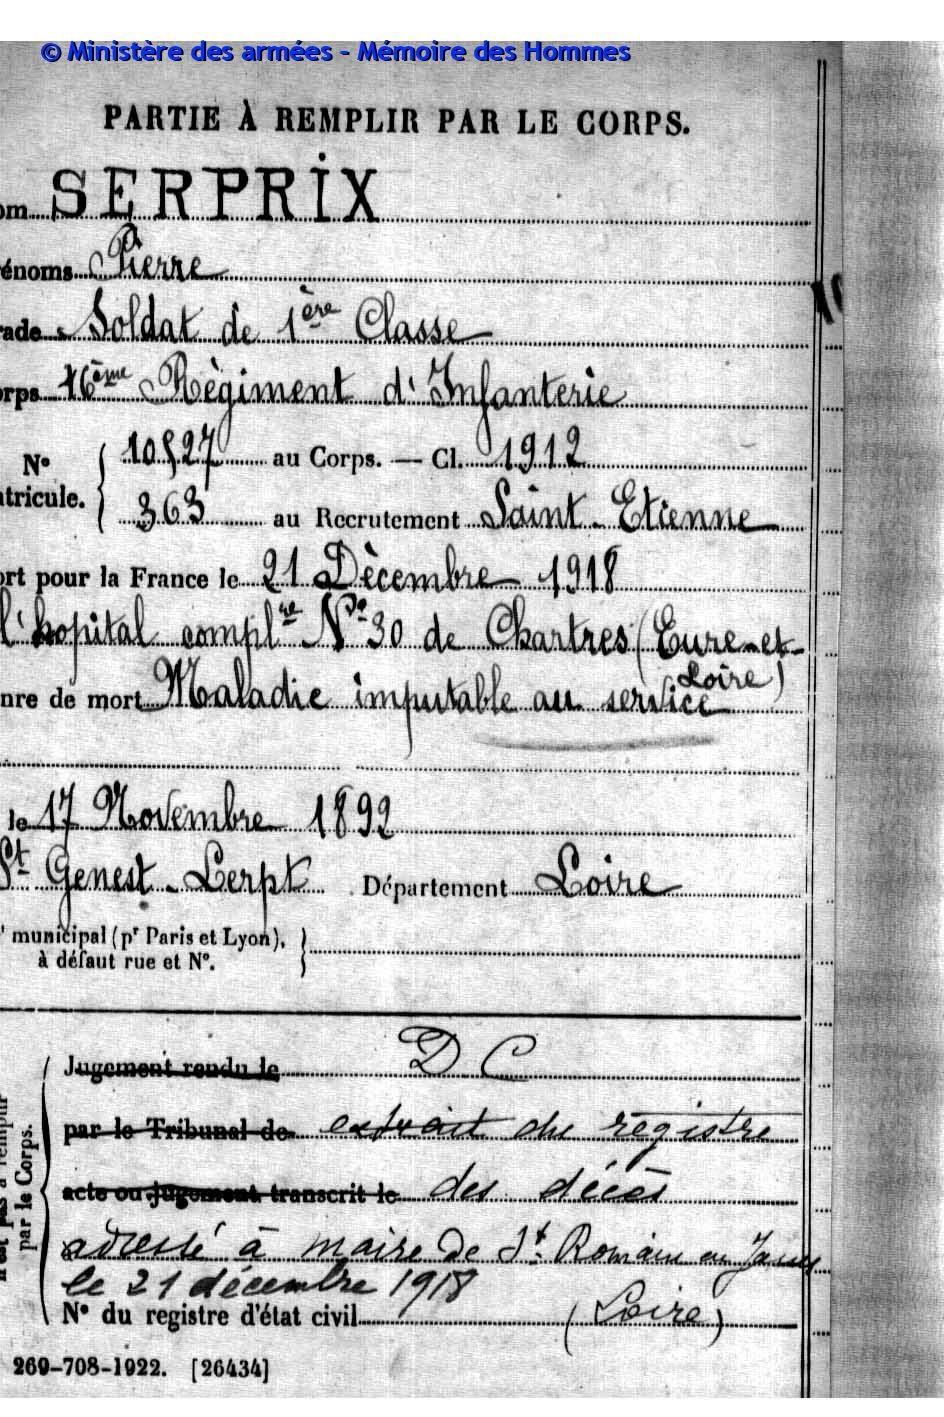 © Ministère des armées - Mémoire des Hommes
PARTIE À REMPLIR PAR LE CORPS.
om SERPRIX
énoms Pierre
rade Soldat de 1ère Classe
orps 16ème Règiment d'Infanterie
N° 10527 au Corps. — Cl. 1912
atricule. 363 au Recrutement Saint-Etienne
ort pour la France le 21 Dècembre 1918
l'hopital complre No 30 de Chartres (Eure-et-
Loire)
nre de mort Maladie imputable au service
le 17 Novembre 1892
St Genest-Lerpt Département Loire
t municipal (pr Paris et Lyon),
à défaut rue et N°.
Jugement rendu le D C
par le Tribunal de extrait du registre
acte ou jugement transcrit le des décès
adressé à maire de St Romain en Jarez
le 21 décembre 1918
N° du registre d'état civil (Loire)
par le Corps.
269-708-1922. [26434]